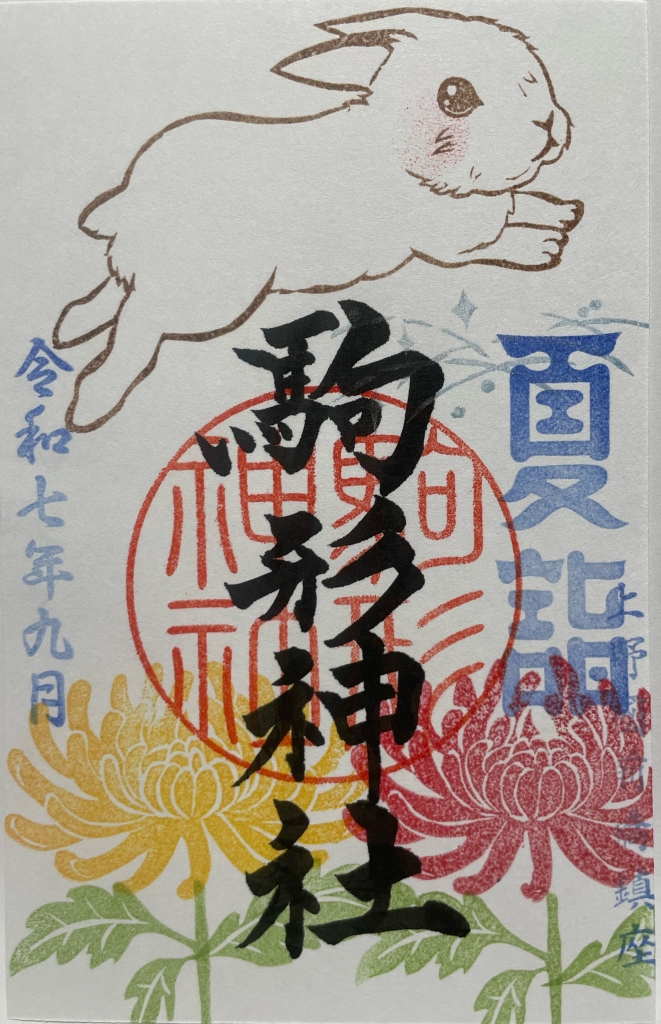 夏詣
上野
鎮座
駒形神社
駒形
神
令和七年九月